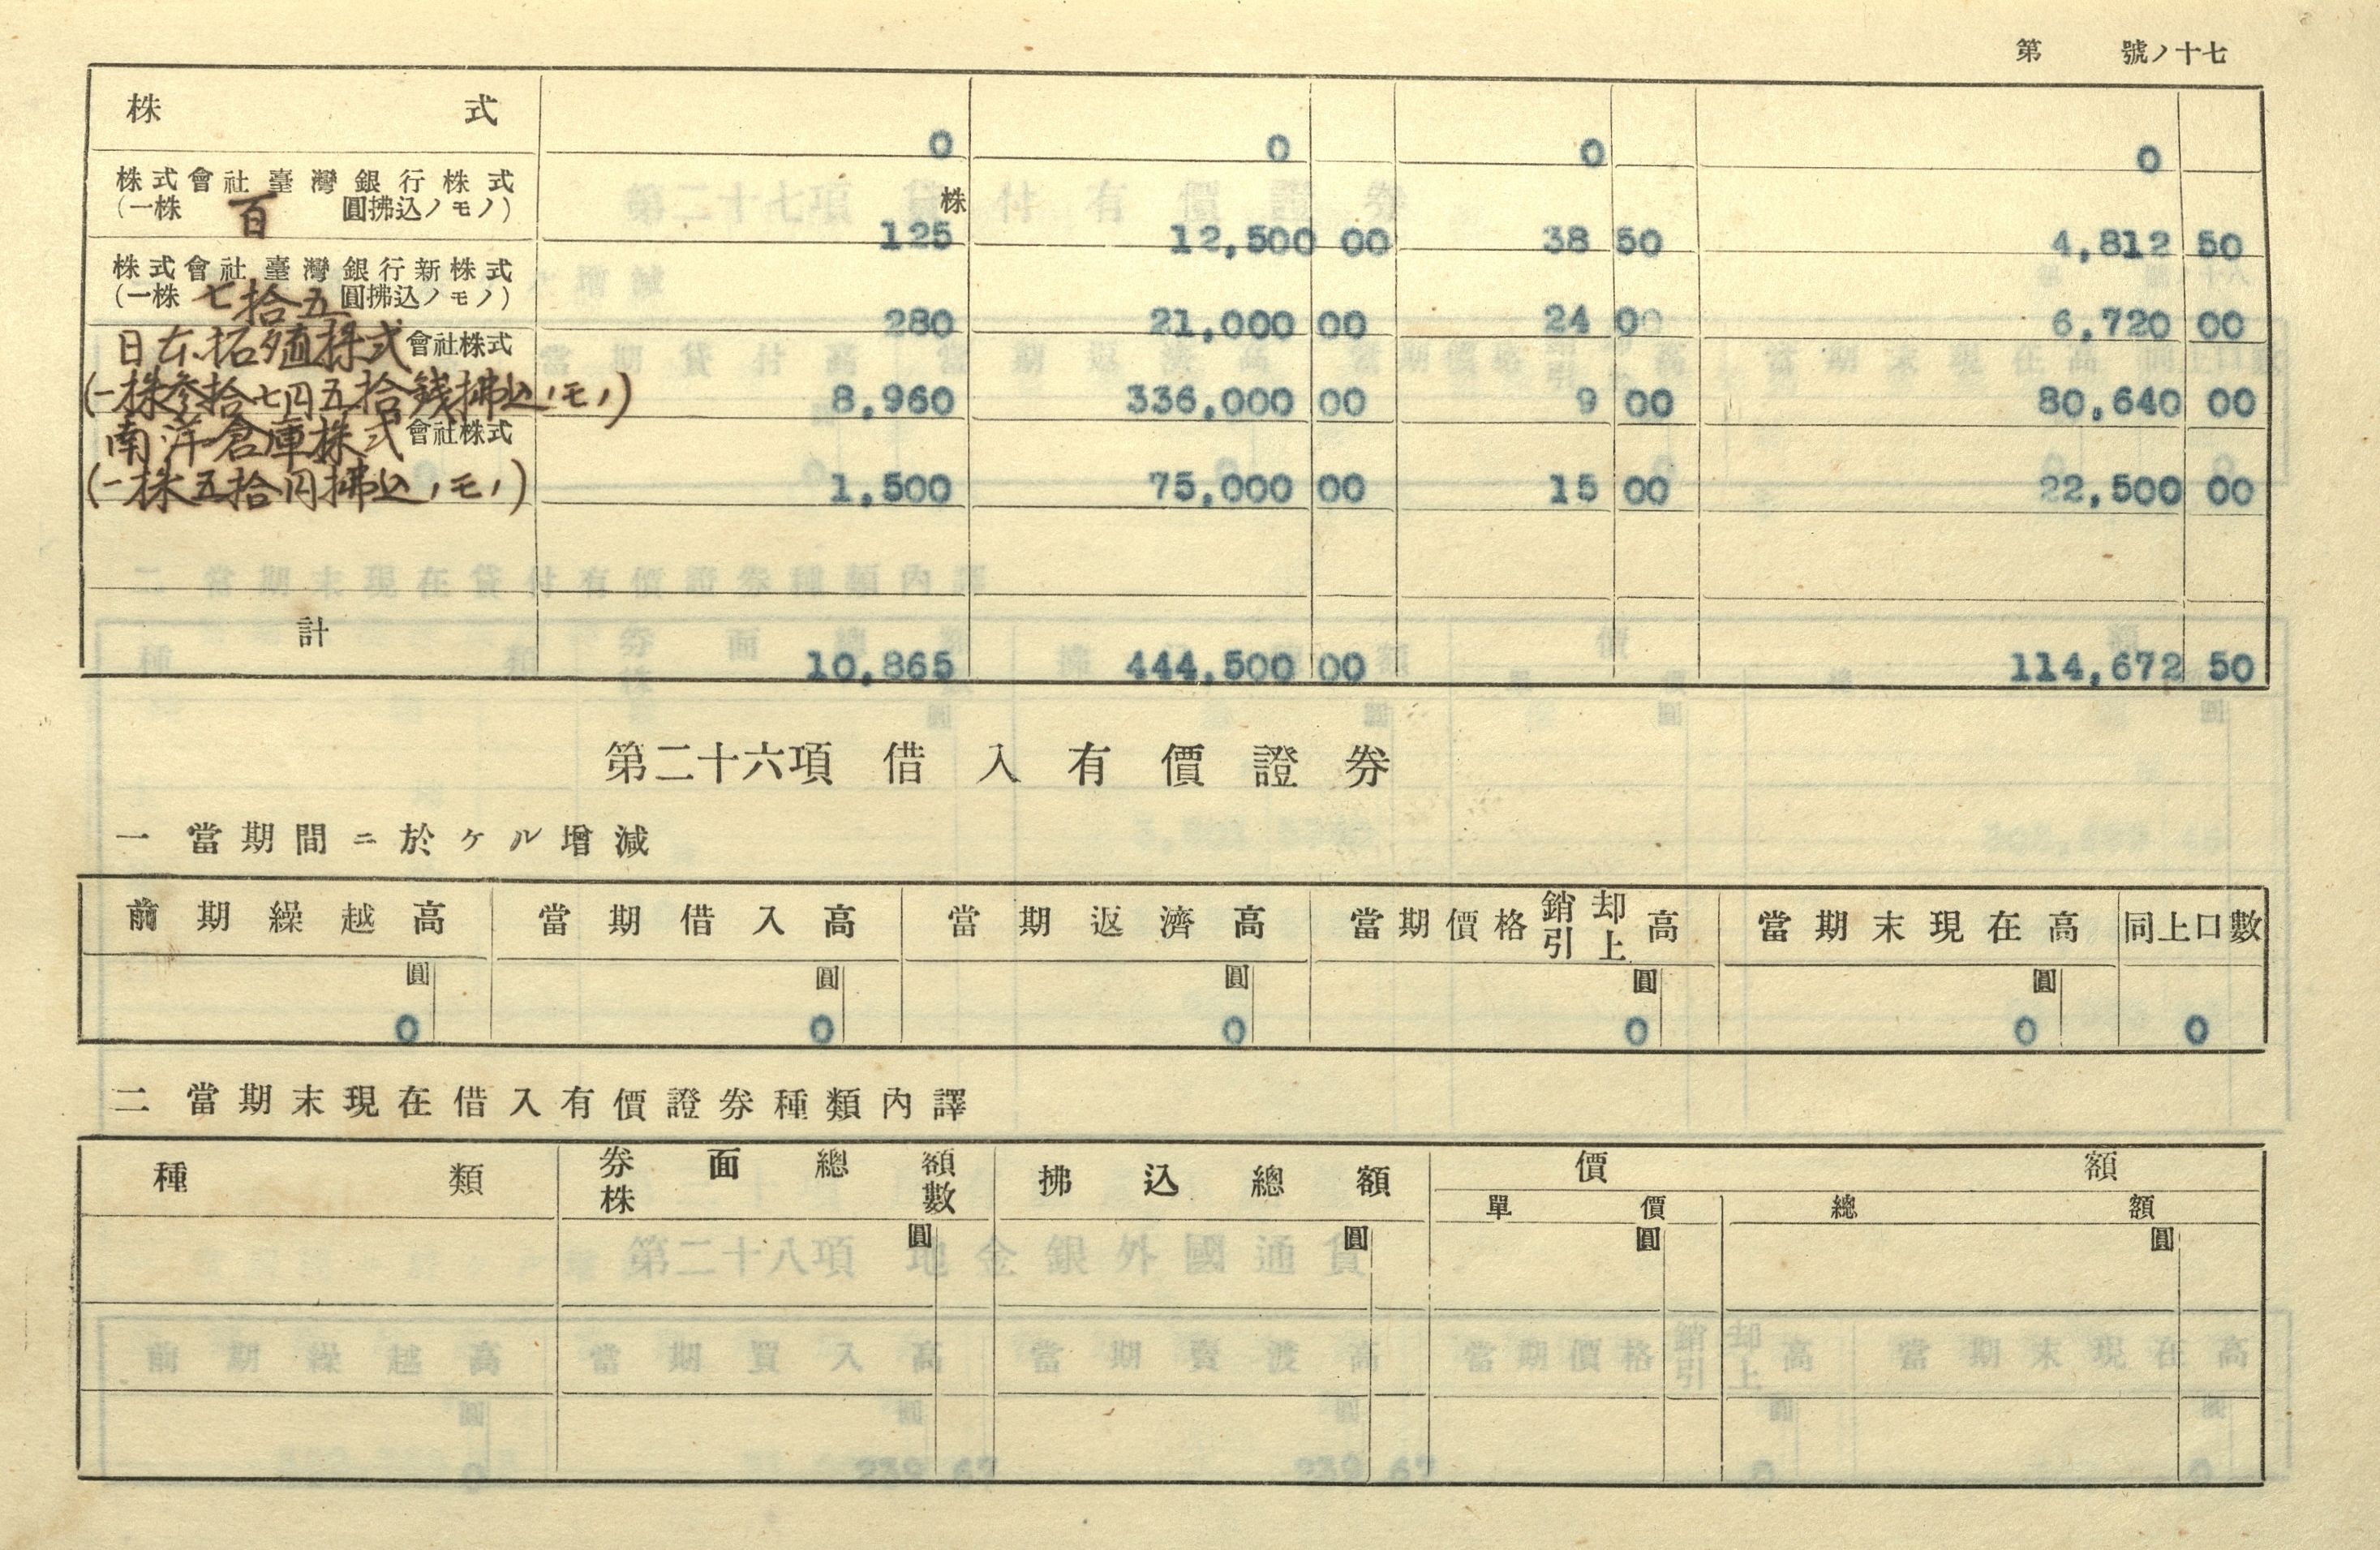 第 號ノ十七
株式 0 0 0 0
株式會社臺灣銀行株式
(一株百圓拂込ノモノ) 株 125 12,500 00 38 50 4,812 50
株式會社臺灣銀行新株式
(一株七拾五圓拂込ノモノ) 280 21,000 00 24 00 6,720 00
日本拓殖株式會社株式
(一株参拾七円五拾錢拂込ノモノ) 8,960 336,000 00 9 00 80,640 00
南洋倉庫株式會社株式
(一株五拾円拂込ノモノ) 1,500 75,000 00 15 00 22,500 00
計 10,865 444,500 00 114,672 50
第二十六項 借入有價證券
一 當期間ニ於ケル增減
前期繰越高 當期借入高 當期返濟高 當期價格銷却引上高 當期末現在高 同上口數
圓 圓 圓 圓 圓
0 0 0 0 0 0
二 當期末現在借入有價證券種類內譯
種類 券面總額 株數 拂込總額 價額
單價 總額
圓 圓 圓 圓